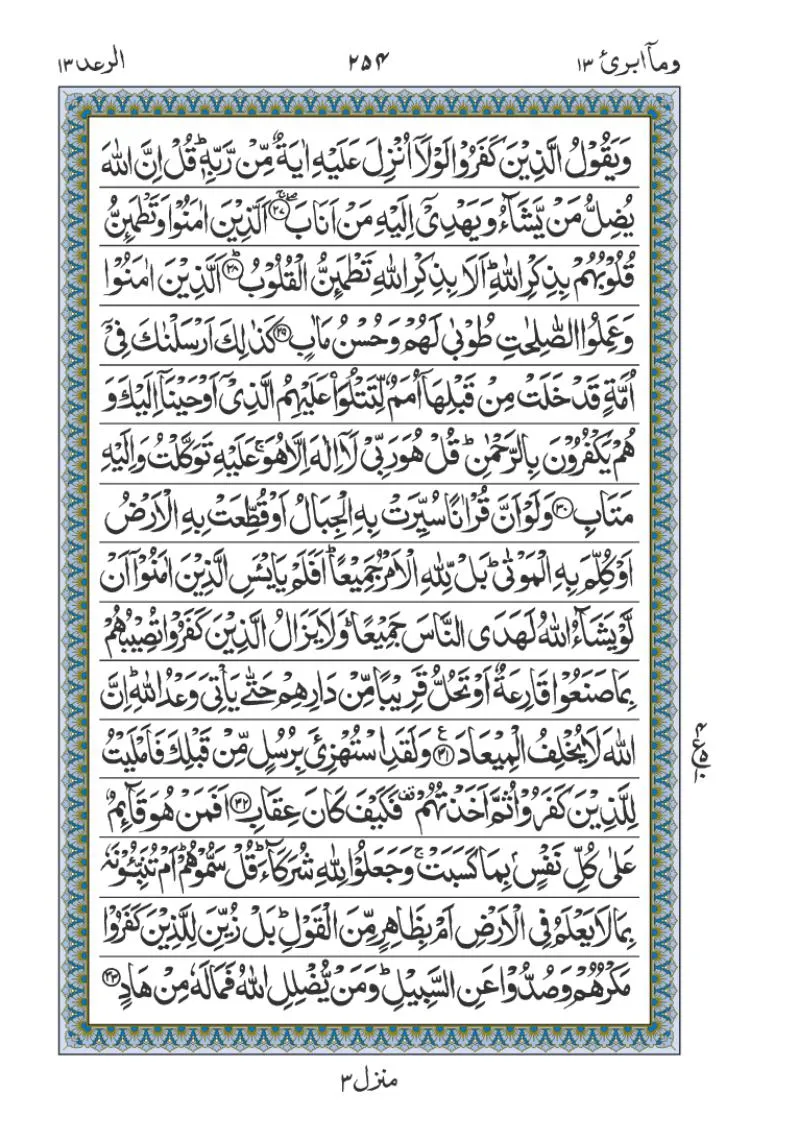 ومآ ابرئ ١٣ ٢٥۴ الرعد ١٣
وَيَقُوْلُ الَّذِيْنَ كَفَرُوْا لَوْلَاۤ اُنْزِلَ عَلَيْهِ اٰيَةٌ مِّنْ رَّبِّهٖ ؕ قُلْ اِنَّ اللّٰهَ
يُضِلُّ مَنْ يَّشَآءُ وَيَهْدِيْۤ اِلَيْهِ مَنْ اَنَابَ ۖۚ ﴿۲۷﴾ اَلَّذِيْنَ اٰمَنُوْا وَتَطْمَئِنُّ
قُلُوْبُهُمْ بِذِكْرِ اللّٰهِ ؕ اَلَا بِذِكْرِ اللّٰهِ تَطْمَئِنُّ الْقُلُوْبُ ؕ ﴿۲۸﴾ اَلَّذِيْنَ اٰمَنُوْا
وَعَمِلُوا الصّٰلِحٰتِ طُوْبٰى لَهُمْ وَحُسْنُ مَاٰبٍ ﴿۲۹﴾ كَذٰلِكَ اَرْسَلْنٰكَ فِيْۤ
اُمَّةٍ قَدْ خَلَتْ مِنْ قَبْلِهَاۤ اُمَمٌ لِّتَتْلُوَا۟ عَلَيْهِمُ الَّذِيْۤ اَوْحَيْنَاۤ اِلَيْكَ وَ
هُمْ يَكْفُرُوْنَ بِالرَّحْمٰنِ ؕ قُلْ هُوَ رَبِّيْ لَاۤ اِلٰهَ اِلَّا هُوَ ۚ عَلَيْهِ تَوَكَّلْتُ وَاِلَيْهِ
مَتَابِ ﴿۳۰﴾ وَلَوْ اَنَّ قُرْاٰنًا سُيِّرَتْ بِهِ الْجِبَالُ اَوْ قُطِّعَتْ بِهِ الْاَرْضُ
اَوْ كُلِّمَ بِهِ الْمَوْتٰى ؕ بَلْ لِّلّٰهِ الْاَمْرُ جَمِيْعًا ؕ اَفَلَمْ يَايْـَٔسِ الَّذِيْنَ اٰمَنُوْۤا اَنْ
لَّوْ يَشَآءُ اللّٰهُ لَهَدَى النَّاسَ جَمِيْعًا ؕ وَلَا يَزَالُ الَّذِيْنَ كَفَرُوْا تُصِيْبُهُمْ
بِمَا صَنَعُوْا قَارِعَةٌ اَوْ تَحُلُّ قَرِيْبًا مِّنْ دَارِهِمْ حَتّٰى يَاْتِيَ وَعْدُ اللّٰهِ ؕ اِنَّ
اللّٰهَ لَا يُخْلِفُ الْمِيْعَادَ ﴿۳۱﴾ ع وَلَقَدِ اسْتُهْزِئَ بِرُسُلٍ مِّنْ قَبْلِكَ فَاَمْلَيْتُ
لِلَّذِيْنَ كَفَرُوْا ثُمَّ اَخَذْتُهُمْ قف فَكَيْفَ كَانَ عِقَابِ ﴿۳۲﴾ اَفَمَنْ هُوَ قَآئِمٌ
عَلٰى كُلِّ نَفْسٍۭ بِمَا كَسَبَتْ ۚ وَجَعَلُوْا لِلّٰهِ شُرَكَآءَ ؕ قُلْ سَمُّوْهُمْ ؕ اَمْ تُنَبِّـُٔوْنَهٗ
بِمَا لَا يَعْلَمُ فِي الْاَرْضِ اَمْ بِظَاهِرٍ مِّنَ الْقَوْلِ ؕ بَلْ زُيِّنَ لِلَّذِيْنَ كَفَرُوْا
مَكْرُهُمْ وَصُدُّوْا عَنِ السَّبِيْلِ ؕ وَمَنْ يُّضْلِلِ اللّٰهُ فَمَا لَهٗ مِنْ هَادٍ ﴿۳۳﴾
منزل ٣